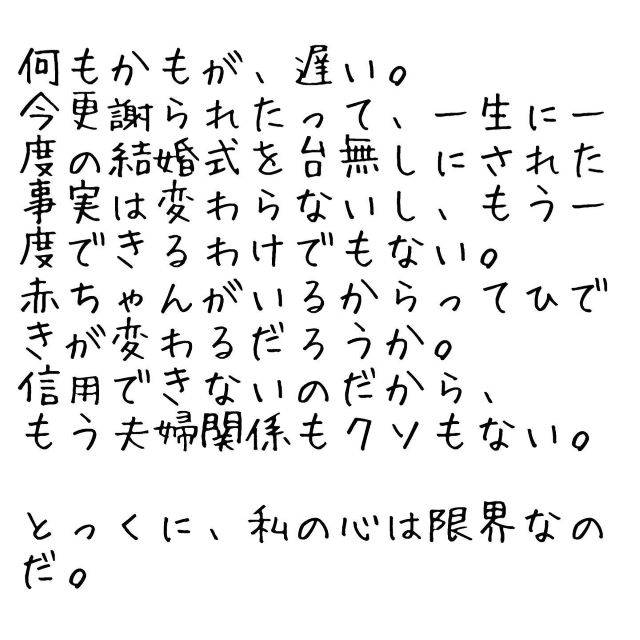 何もかもが、遅い。
今更謝られたって、一生に一
度の結婚式を台無しにされた
事実は変わらないし、もう一
度できるわけでもない。
赤ちゃんがいるからってひで
きが変わるだろうか。
信用できないのだから、
もう夫婦関係もクソもない。
とっくに、私の心は限界なの
だ。